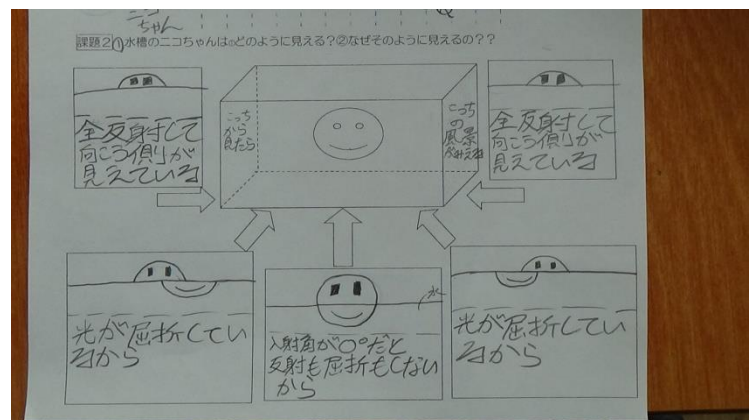 ニコ
ちゃん
課題2①水槽のニコちゃんは①どのように見える?②なぜそのように見えるの??
全反射して
向こう側が
見えている
こっち
から
見たら
こっち
の
風景
がみえる
全反射して
向こう側が
見えている
光が屈折してい
るから
水
入射角が0°だと
反射も屈折もしない
から
光が屈折してい
るから